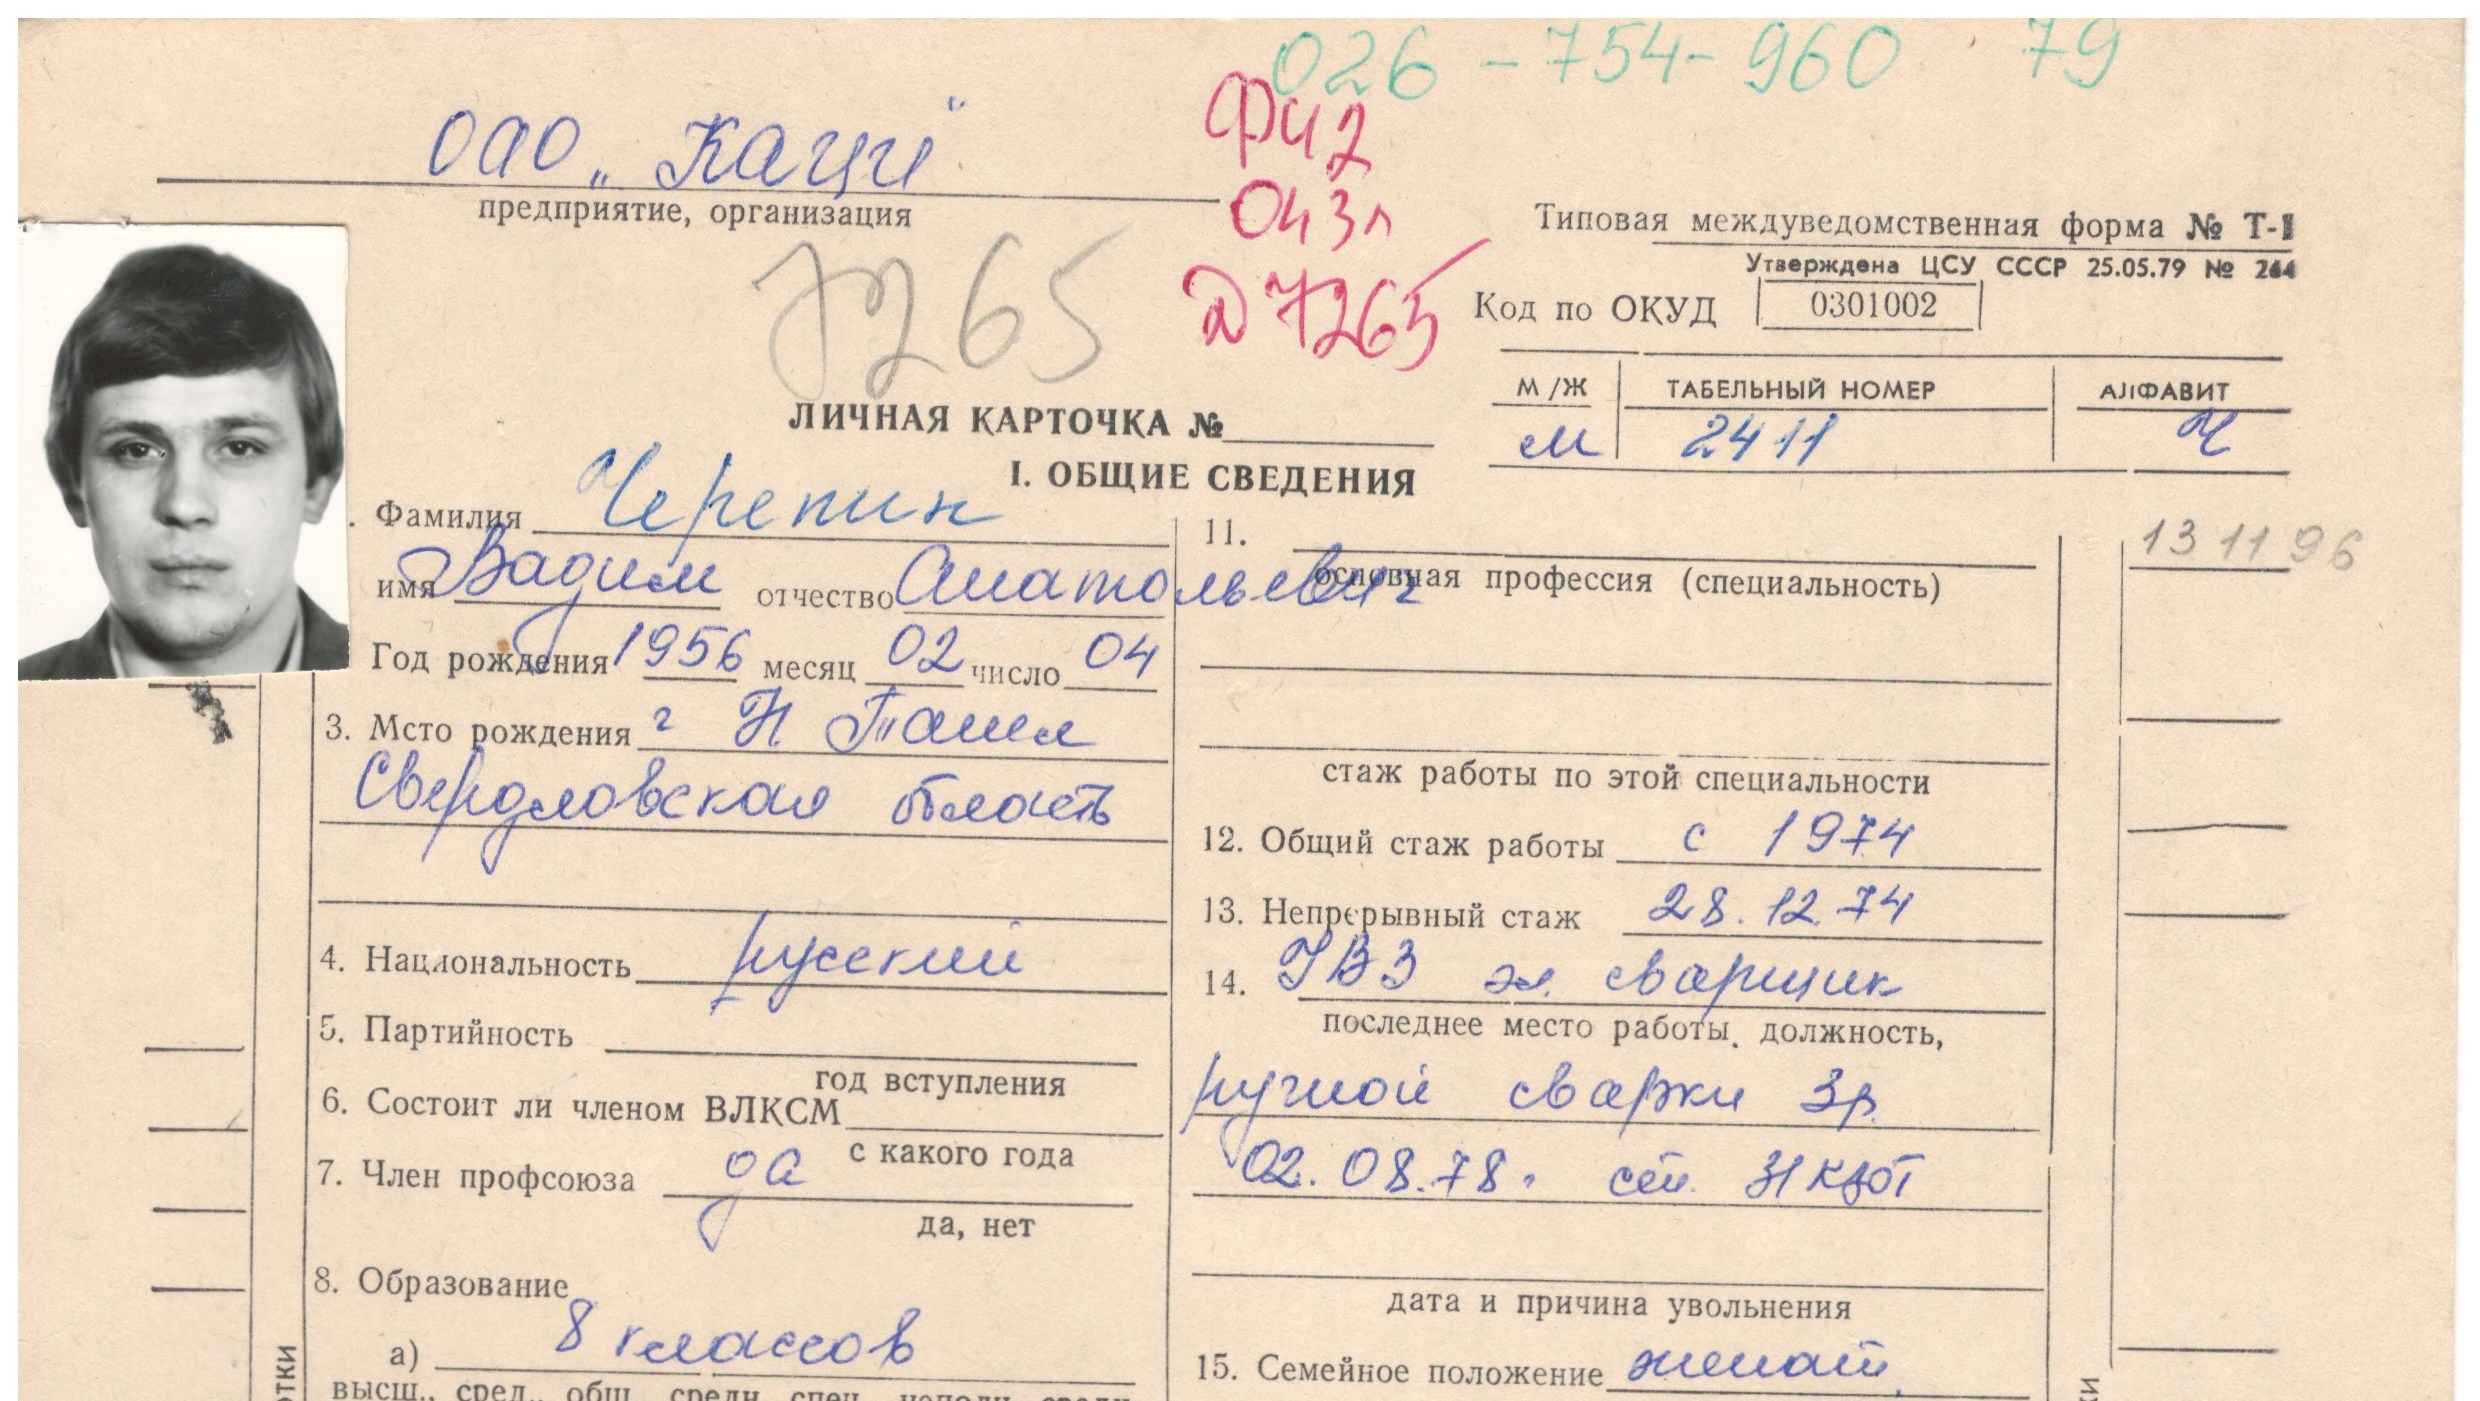 026-754-960 79
ОАО „Каци"
предприятие, организация
Ф Ч 2
043л
Д 7265
7265
Типовая междуведомственная форма № Т-1
Утверждена ЦСУ СССР 25.05.79 № 264
Код по ОКУД 0301002
М/Ж ТАБЕЛЬНЫЙ НОМЕР АЛФАВИТ
м 2411 Ч
ЛИЧНАЯ КАРТОЧКА №
I. ОБЩИЕ СВЕДЕНИЯ
. Фамилия Черепин
имя Вадим отчество Анатольевич
Год рождения 1956 месяц 02 число 04
3. Мсто рождения г Н Тагил
Свердловская область
4. Национальность русский
5. Партийность
год вступления
6. Состоит ли членом ВЛКСМ
с какого года
7. Член профсоюза да
да, нет
8. Образование
а) 8 классов
высш., сред., общ., средн. спец., неполн. средн.
11.
основная профессия (специальность)
стаж работы по этой специальности
12. Общий стаж работы с 1974
13. Непрерывный стаж 28.12.74
14. УВЗ эл. сварщик
последнее место работы, должность,
ручной сварки 3р.
02.08.78. ст. 31 КЗОТ
дата и причина увольнения
15. Семейное положение женат
13 11 96